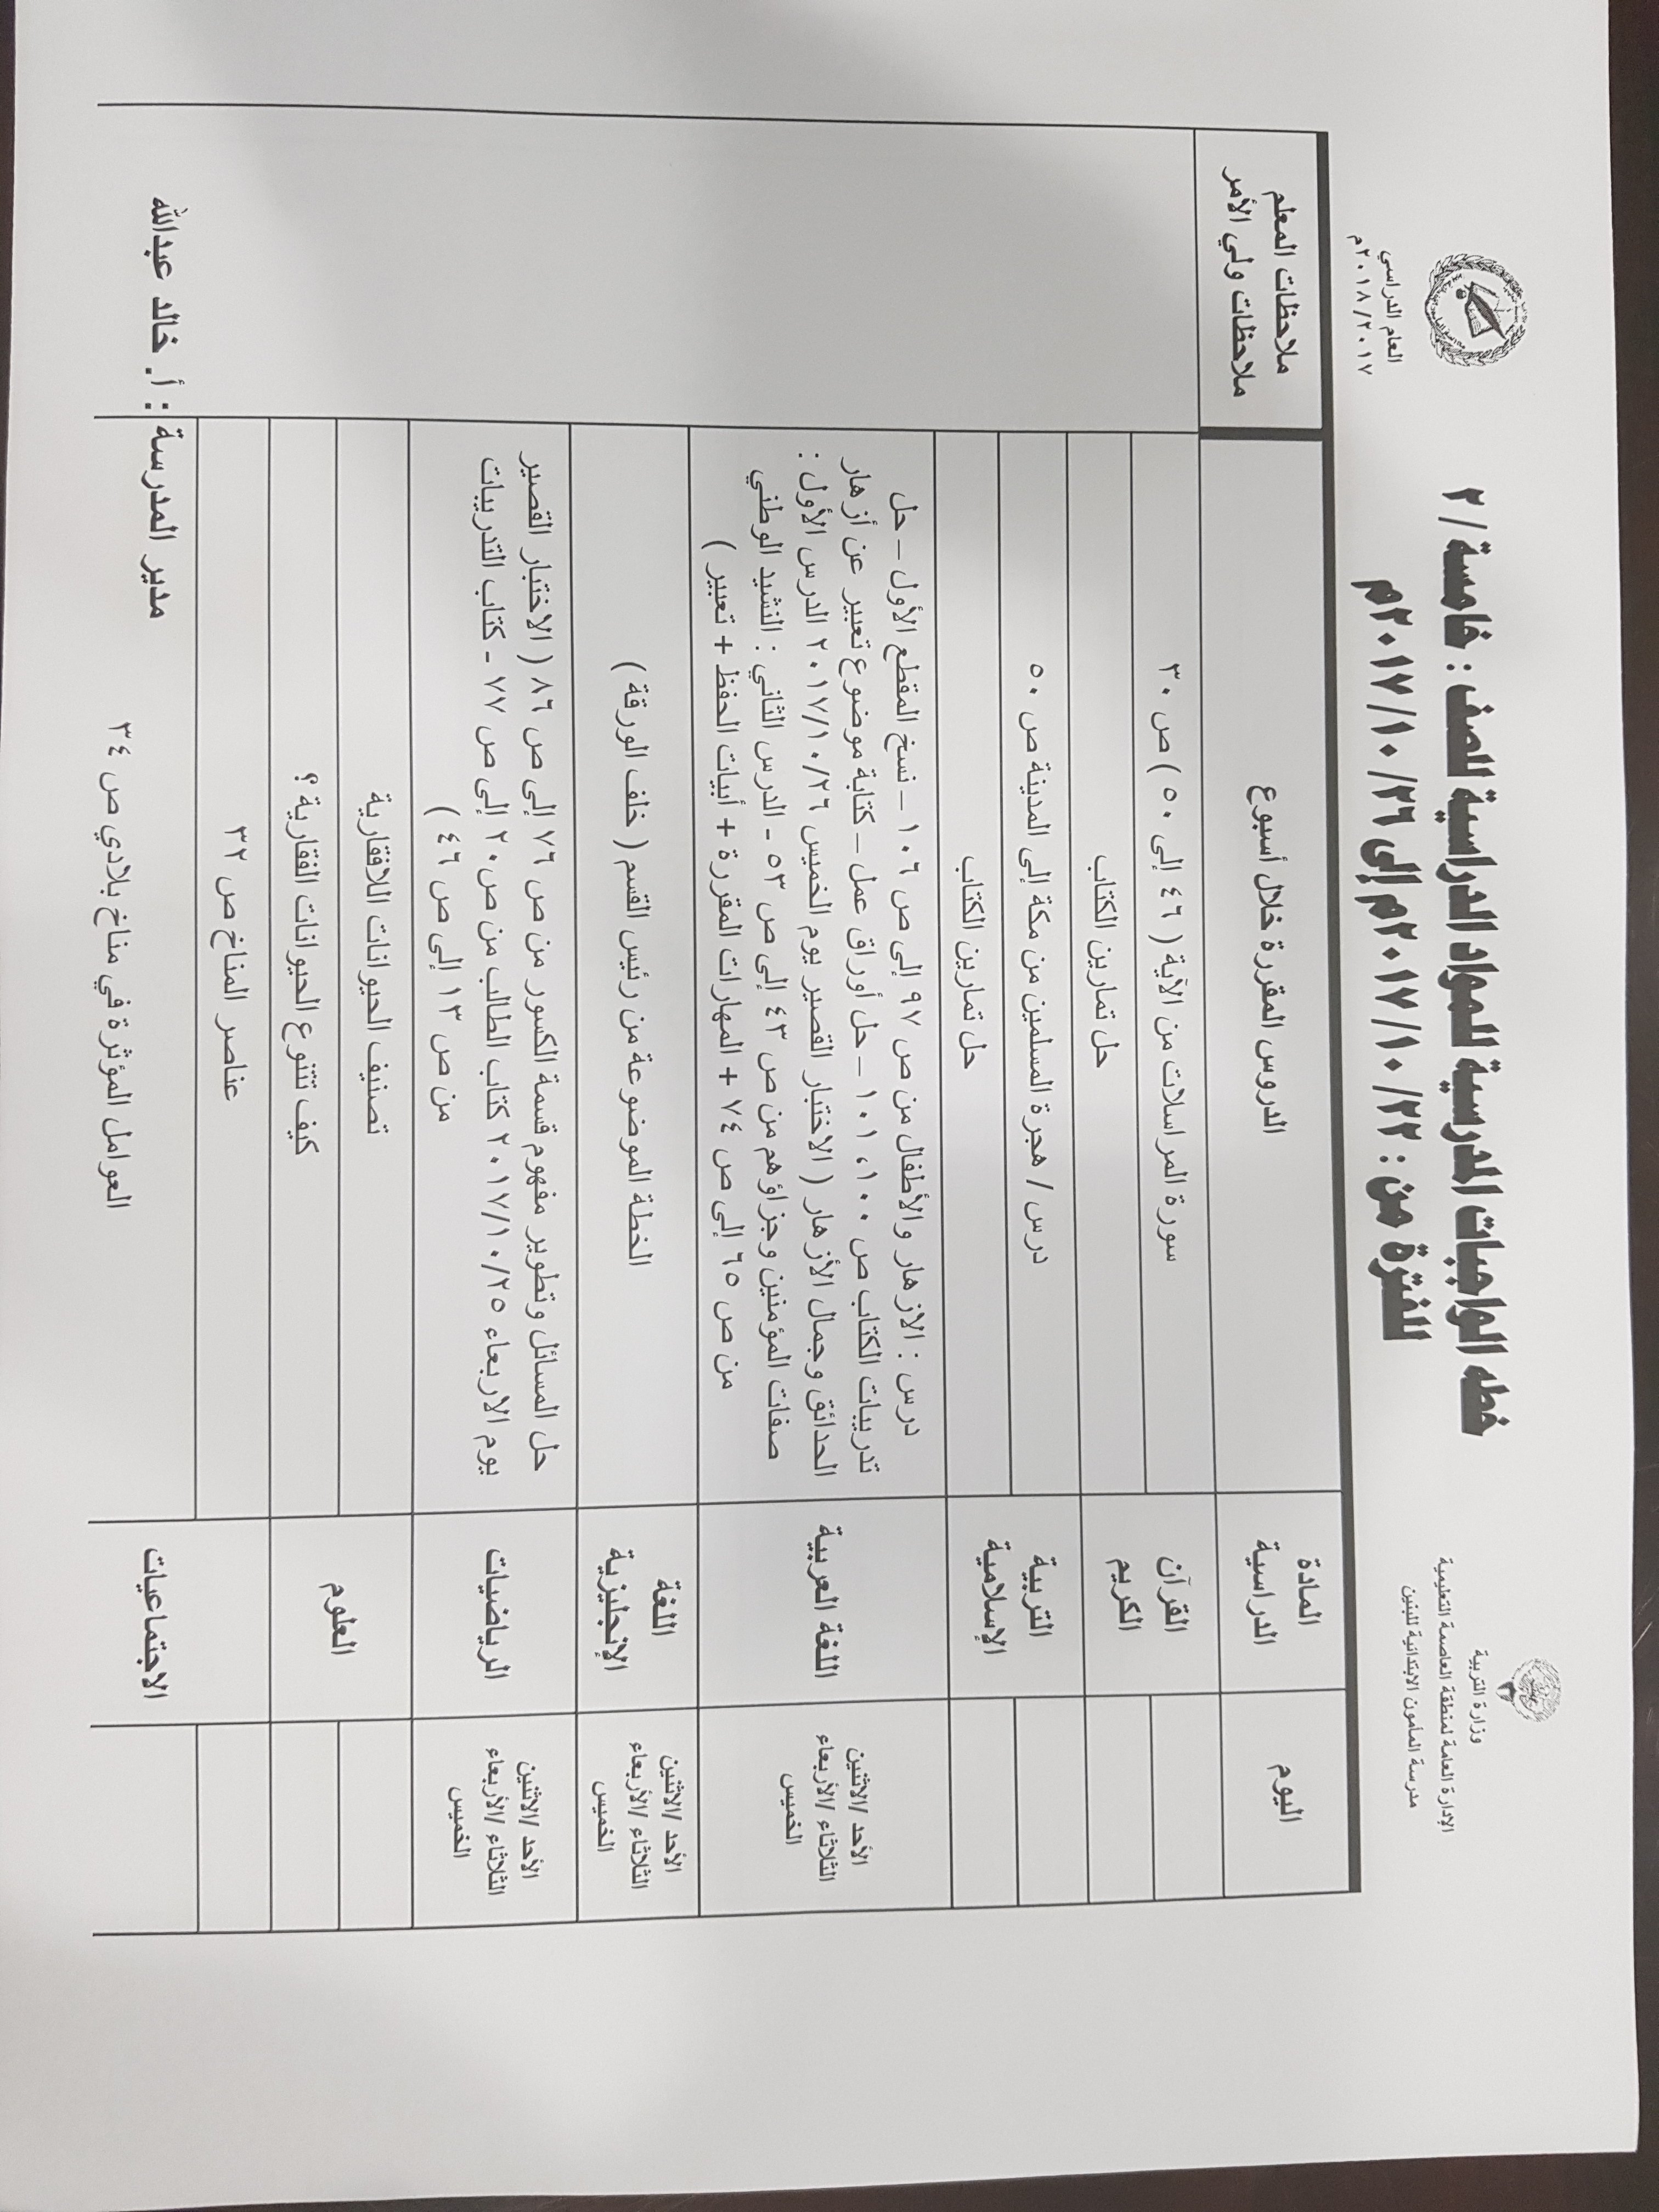 وزارة التربية
الإدارة العامة لمنطقة العاصمة التعليمية
مدرسة المأمون الابتدائية للبنين
خطه الواجبات المدرسية للمواد الدراسية للصف : خامسة / ٢
للفترة من : ٢٠١٧/١٠/٢٢م إلى ٢٠١٧/١٠/٢٦م
العام الدراسي
٢٠١٨/٢٠١٧م
اليوم
المادة
الدراسية
الدروس المقررة خلال أسبوع
ملاحظات المعلم
ملاحظات ولي الأمر
القرآن
الكريم
سورة المرسلات من الآية ( ٤٦ إلى ٥٠ ) ص ٣٠
حل تمارين الكتاب
التربية
الإسلامية
درس / هجرة المسلمين من مكة إلى المدينة ص ٥٠
حل تمارين الكتاب
الأحد /الاثنين
الثلاثاء /الأربعاء
الخميس
اللغة العربية
درس : الازهار والأطفال من ص ٩٧ إلى ص ١٠٦ – نسخ المقطع الأول – حل
تدريبات الكتاب ص ١٠٠ ، ١٠١ – حل أوراق عمل – كتابة موضوع تعبير عن أزهار
الحدائق وجمال الأزهار ( الاختبار القصير يوم الخميس ٢٠١٧/١٠/٢٦ الدرس الأول :
صفات المؤمنين وجزاؤهم من ص ٤٣ إلى ص ٥٣ - الدرس الثاني : النشيد الوطني
من ص ٦٥ إلى ص ٧٤ + المهارات المقررة + أبيات الحفظ + تعبير )
الأحد /الاثنين
الثلاثاء /الأربعاء
الخميس
اللغة
الإنجليزية
الخطة الموضوعة من رئيس القسم ( خلف الورقة )
الأحد /الاثنين
الثلاثاء /الأربعاء
الخميس
الرياضيات
حل المسائل وتطوير مفهوم قسمة الكسور من ص ٧٦ إلى ص ٨٦ ( الاختبار القصير
يوم الاربعاء ٢٠١٧/١٠/٢٥ كتاب الطالب من ص ٢٠ إلى ص ٧٧ - كتاب التدريبات
من ص ١٣ إلى ص ٤٦ )
العلوم
تصنيف الحيوانات اللافقارية
كيف تتنوع الحيوانات الفقارية ؟
الاجتماعيات
عناصر المناخ ص ٣٢
العوامل المؤثرة في مناخ بلادي ص ٣٤
مدير المدرسة : أ. خالد عبدالله